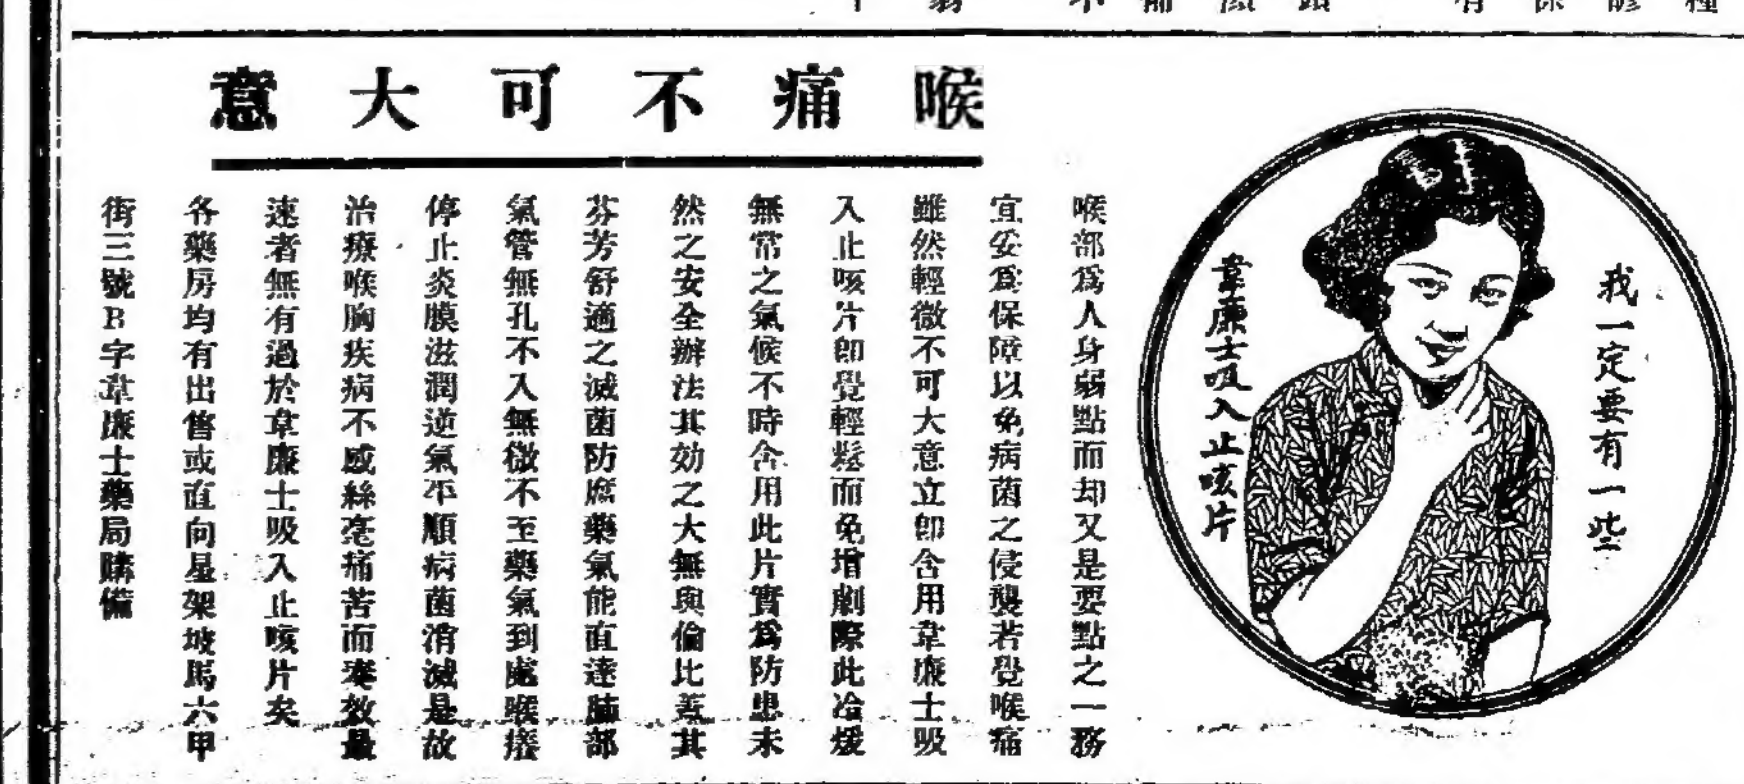 喉痛不可大意
我一定要有一些
韋廉士吸入止咳片
喉部爲人身弱點而却又是要點之一務
宜妥爲保障以免病菌之侵襲若覺喉痛
雖然輕微不可大意立卽含用韋廉士吸
入止咳片卽覺輕鬆而免增劇際此冷煖
無常之氣候不時含用此片實爲防患未
然之安全辦法其効之大無與倫比蓋其
芬芳舒適之滅菌防腐藥氣能直達肺部
氣管無孔不入無微不至藥氣到處喉癢
停止炎膜滋潤逆氣平順病菌消滅是故
治療喉胸疾病不感絲毫痛苦而奏效最
速者無有過於韋廉士吸入止咳片矣
各藥房均有出售或直向星架坡馬六甲
街三號B字韋廉士藥局購備